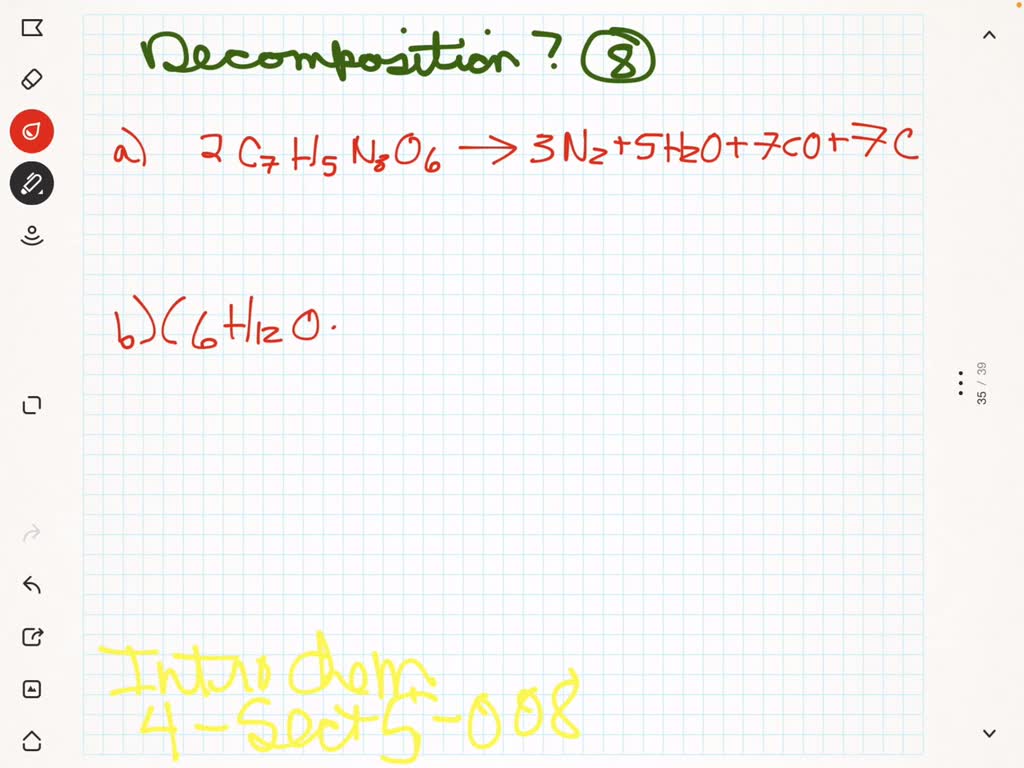 Decomposition ? 8
a) 2 C7 H5 N3 O6 → 3 N2 + 5 H2O + 7 CO + 7 C
b) C6H12O
35 / 39
Intro Chem
4 - Sect 5 - 008